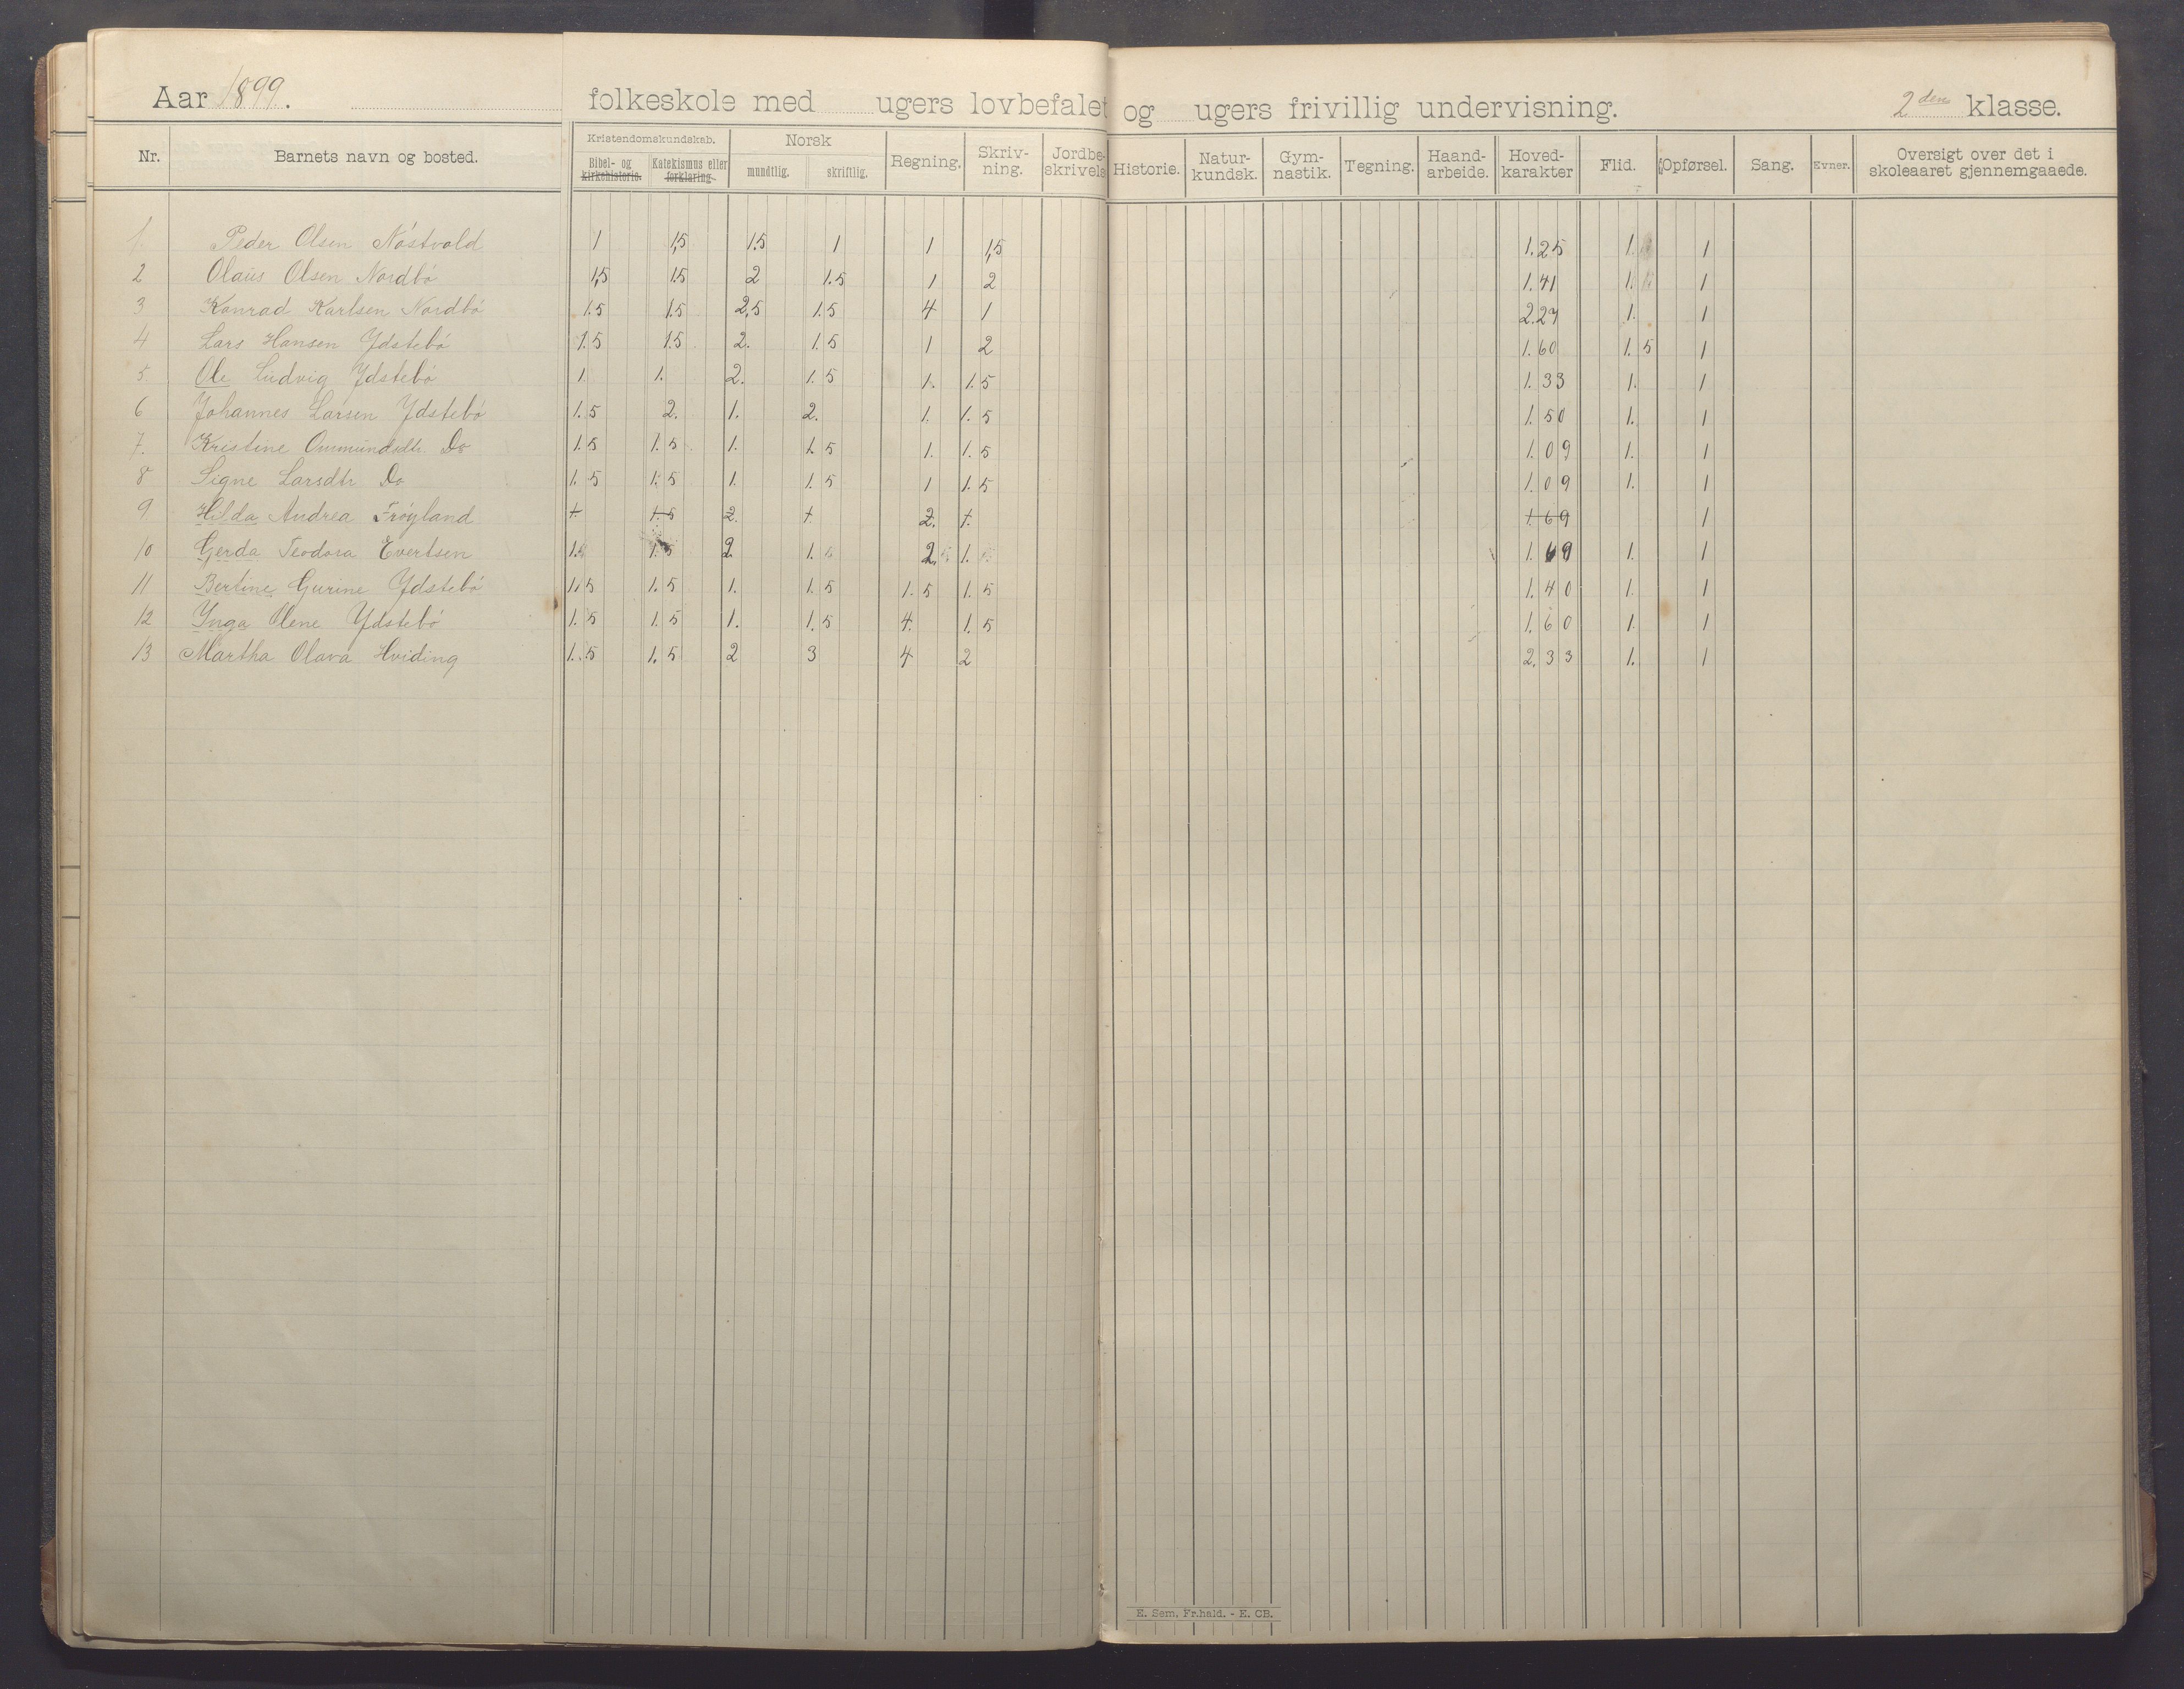 Aar 1899. folkeskole med ugers lovbefalet og ugers frivillig undervisning. 2den klasse.
Nr. Barnets navn og bosted. Kristendomskundskab. Bibel- og kirkehistorie. Katekismus eller forklaring. Norsk mundtlig. skriftlig. Regning. Skriv-ning. Jordbe-skrivels Historie. Natur-kundsk. Gym-nastik. Tegning. Haand-arbeide. Hoved-karakter Flid. Opførsel. Sang. Evner. Oversigt over det i skoleaaret gjennemgaaede.
1. Peder Olsen Nåstvold 1 1,5 1.5 1 1 1,5 1.25 1. 1
2 Olaus Olsen Nordbö 1,5 1.5 2 1.5 1 2 1.41 1. 1
3 Konrad Karlsen Nordbö 1.5 1.5 2,5 1.5 4 1 2.27 1. 1
4 Lars Hansen Ydstebö 1.5 1.5 2. 1.5 1 2 1.60 1.5 1
5. Ole Ludvig Ydstebö 1 1. 2. 1.5 1. 1.5 1.33 1. 1
6 Johannes Larsen Ydstebö 1.5 2. 1. 2. 1. 1.5 1.50 1. 1
7. Kristine Ommundsdtr. Do 1.5 1.5 1. 1.5 1. 1.5 1.09 1. 1
8 Signe Larsdtr Do 1.5 1.5 1. 1.5 1 1.5 1.09 1. 1
9 Hilda Andrea Fröyland 1. 1.5 2. 1. 2. 1. 1.69 1
10 Gerda Teodora Evertsen 1. 1.5 2. 1. 2. 1. 1.69 1. 1
11 Bertine Gurine Ydstebö 1.5 1.5 1. 1.5 1.5 1.5 1.40 1. 1
12 Inga Olene Ydstebö 1.5 1.5 1. 1.5 4. 1.5 1.60 1. 1
13 Martha Olava Hviding 1.5 1.5 2 3 4 2 2.33 1. 1
E. Sem, Fr.hald. - E. CB.